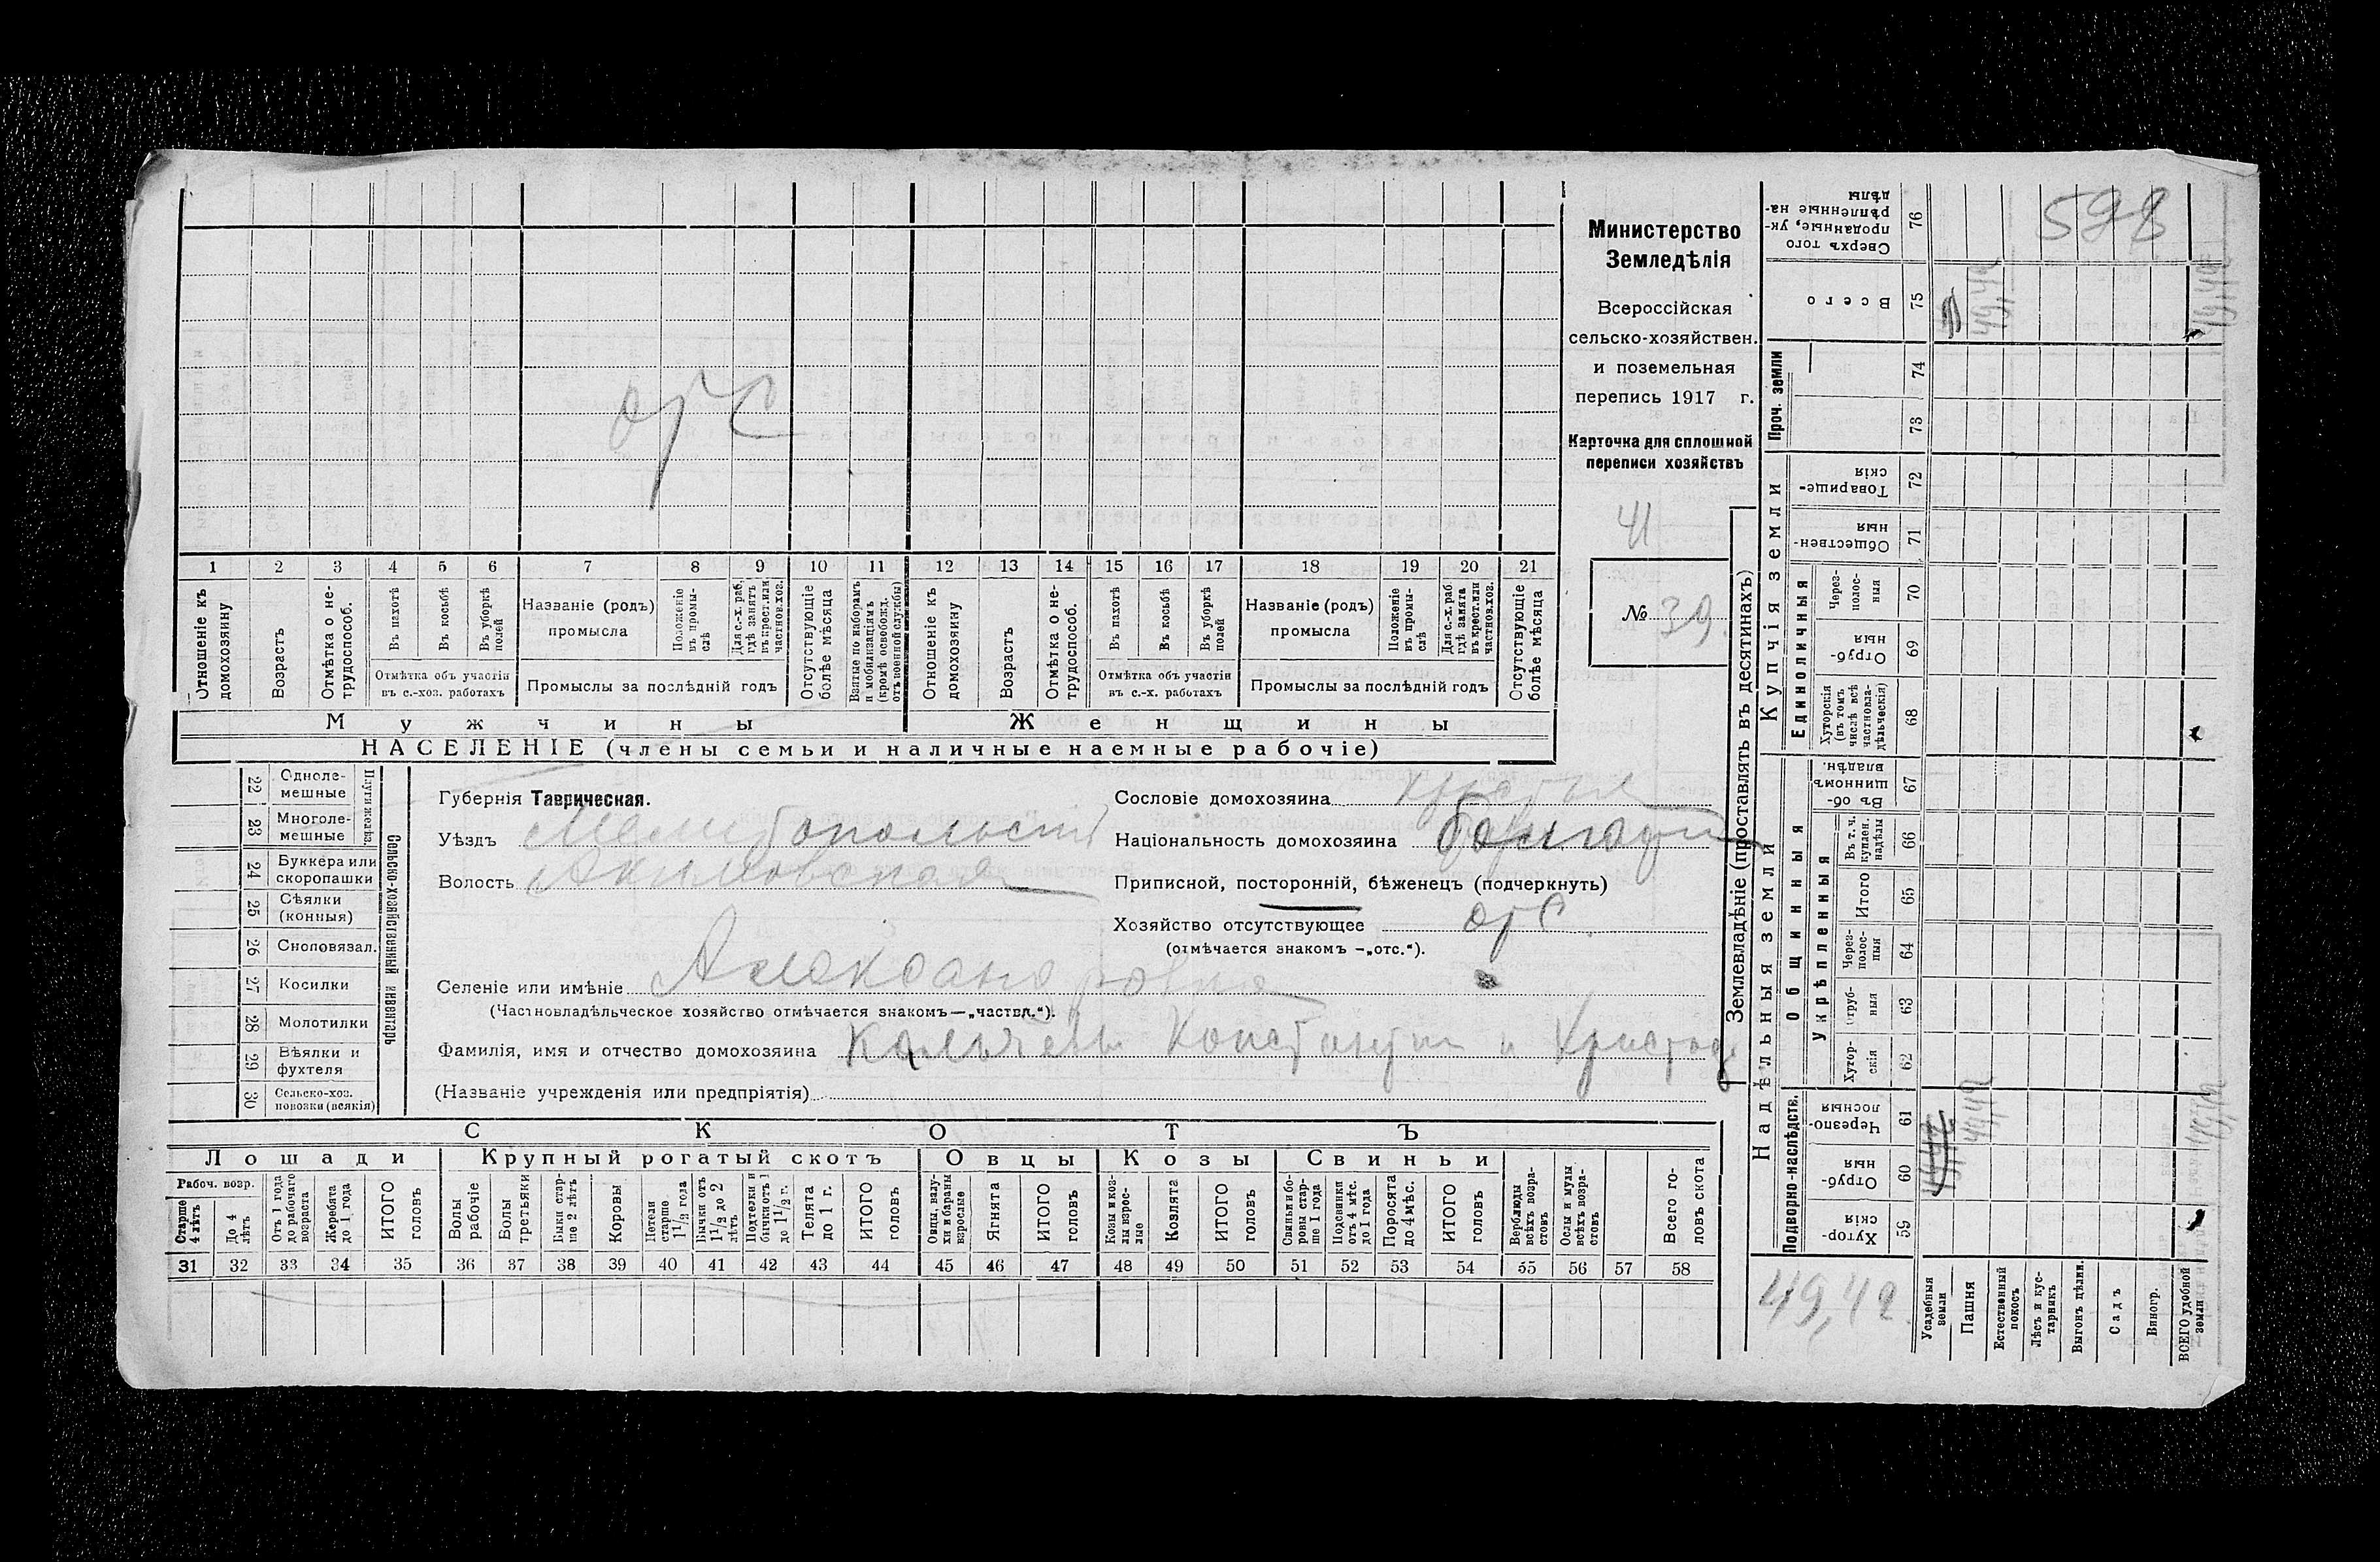 отс
1 2 3 4 5 6 7 8 9 10 11 12 13 14 15 16 17 18 19 20 21
Отношеніе къ домохозяину
Возрастъ
Отмѣтка о не-
трудоспособ.
Въ пахотѣ
Въ косьбѣ
Въ уборкѣ полей
Отмѣтка объ участіи
въ с.-хоз. работахъ
Названіе (родъ)
промысла
Положеніе въ промы-
слѣ
Для с.-х. раб.
гдѣ занятъ
въ крест. или
частнов. хоз.
Промыслы за послѣдній годъ
Отсутствующіе
болѣе мѣсяца
Взятые по наборамъ
и мобилизаціямъ
(кромѣ освобожд.
отъ военной службы)
Отношеніе къ
домохозяину
Возрастъ
Отмѣтка о не-
трудоспособ.
Въ пахотѣ
Въ косьбѣ
Въ уборкѣ
полей
Отмѣтка объ участіи
въ с.-х. работахъ
Названіе (родъ)
промысла
Положеніе
въ промы-
слѣ
Для с.-х. раб
гдѣ занята
въ крест. или
частнов. хоз.
Промыслы за послѣдній годъ
Отсутствующіе
болѣе мѣсяца
Мужчины
Женщины
НАСЕЛЕНІЕ (члены семьи и наличные наемные рабочіе)
Министерство
Земледѣлія
Всероссійская
сельско-хозяйствен.
и поземельная
перепись 1917 г.
Карточка для сплошной
переписи хозяйствъ
41
№ 39
22 Одноле-
мешные
23 Многоле-
мешные
24 Буккера или
скоропашки
25 Сѣялки
(конныя)
26 Сноповязал.
27 Косилки
28 Молотилки
29 Вѣялки и
фухтеля
30 Сельско-хоз.
повозки (всякія)
Сельско-хозяйственный инвентарь
Губернія Таврическая.
Уѣздъ Мелитопольскій
Волость Акимовская
Селеніе или имѣніе Александровка
(Частновладѣльческое хозяйство отмѣчается знакомъ—„частвл.“).
Фамилія, имя и отчество домохозяина Кальчевы Константин и Христоф
(Названіе учрежденія или предпріятія)
Сословіе домохозяина крестья
Національность домохозяина болгарин
Приписной, посторонній, бѣженецъ (подчеркнуть)
Хозяйство отсутствующее отс
(отмѣчается знакомъ —„отс.“).
СКОТЪ
Лошади
Крупный рогатый скотъ
Овцы
Козы
Свиньи
Рабоч. возр.
Старше
4 лѣтъ
До 4
лѣтъ
Отъ 1 года
до рабочаго
возраста
Жеребята
до 1 года
ИТОГО
головъ
Волы
рабочіе
Волы
третьяки
Быки стар-
ше 2 лѣтъ
Коровы
Нетели
старше
1 1/2 года
Бычки отъ
1 1/2 до 2
лѣтъ
Подтелки и
бычки отъ 1
до 1 1/2 г.
Телята
до 1 г.
ИТОГО
головъ
Овцы, валу-
хи и бараны
взрослые
Ягнята
ИТОГО
головъ
Козы и коз-
лы взрос-
лые
Козлята
ИТОГО
головъ
Свиньи и бо-
ровы стар-
ше 1 года
Подсвинки
отъ 4 мѣс.
до 1 года
Поросята
до 4 мѣс.
ИТОГО
головъ
Верблюды
всѣхъ возра-
стовъ
Ослы и мулы
всѣхъ возра-
стовъ
Всего го-
ловъ скота
31 32 33 34 35 36 37 38 39 40 41 42 43 44 45 46 47 48 49 50 51 52 53 54 55 56 57 58
Землевладѣніе (проставлять въ десятинахъ)
Надѣльныя земли
Купчія земли
Проч. земли
Подворно-наслѣдств.
Общинныя
Укрѣпленныя
Единоличныя
Сверхъ того
проданные, ук-
рѣпленные на-
дѣлы
76
Всего
75
74
73
Товарище-
скія
72
Обществен-
ныя
71
Через-
полос-
ныя
70
Отруб-
ныя
69
Хуторскія
(въ томъ
числѣ всѣ
частновла-
дѣльческія)
68
Въ об-
щинномъ
владѣн.
67
Въ т. ч.
куплен.
надѣлы
66
Итого
65
Через-
полос-
ныя
64
Отруб-
ныя
63
Хутор-
скія
62
Черезпо-
лосныя
61
Отруб-
ныя
60
Хутор-
скія
59
598
49,42
49,42
49,42
49,42
49,42
Усадебныя
земли
Пашня
Естественный
покосъ
Лѣсъ и кус-
тарникъ
Выгонъ дѣлин.
Садъ
Виногр.
ВСЕГО удобной
земли